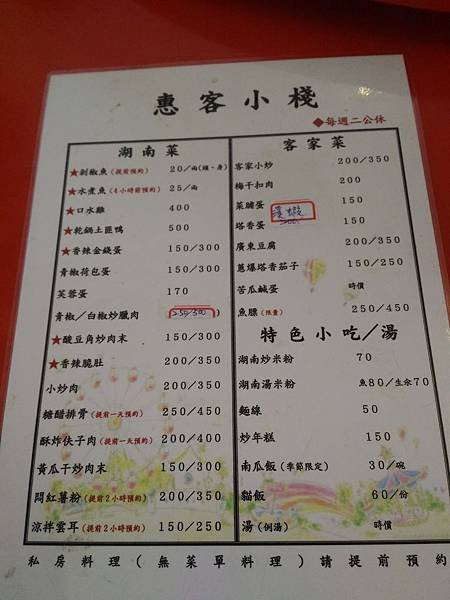 惠客小棧
◆每週二公休
湖南菜
★剁椒魚(提前預約) 20/兩(頭、身)
★水煮魚(4小時前預約) 25/兩
★口水雞 400
★乾鍋土匪鴨 500
★香辣金錢蛋 150/300
青椒荷包蛋 150/300
芙蓉蛋 170
青椒/白椒炒臘肉 250/500
★酸豆角炒肉末 150/300
★香辣脆肚 200/350
小炒肉 200/350
糖醋排骨(提前一天預約) 250/450
酥炸伕子肉(提前一天預約) 200/400
黃瓜干炒肉末 150/300
悶紅薯粉(提前2小時預約) 200/350
涼拌雲耳(提前2小時預約) 150/250
客家菜
客家小炒 200/350
梅干扣肉 200
菜脯蛋 150
塔香蛋 150
廣東豆腐 200/350
蔥爆塔香茄子 150/250
苦瓜鹹蛋 時價
魚膘(限量) 250/450
特色小吃/湯
湖南炒米粉 70
湖南湯米粉 魚80/生汆70
麵線 50
炒年糕 150
南瓜飯(季節限定) 30/碗
貓飯 60/份
湯(例湯) 時價
私房料理(無菜單料理)請提前預約